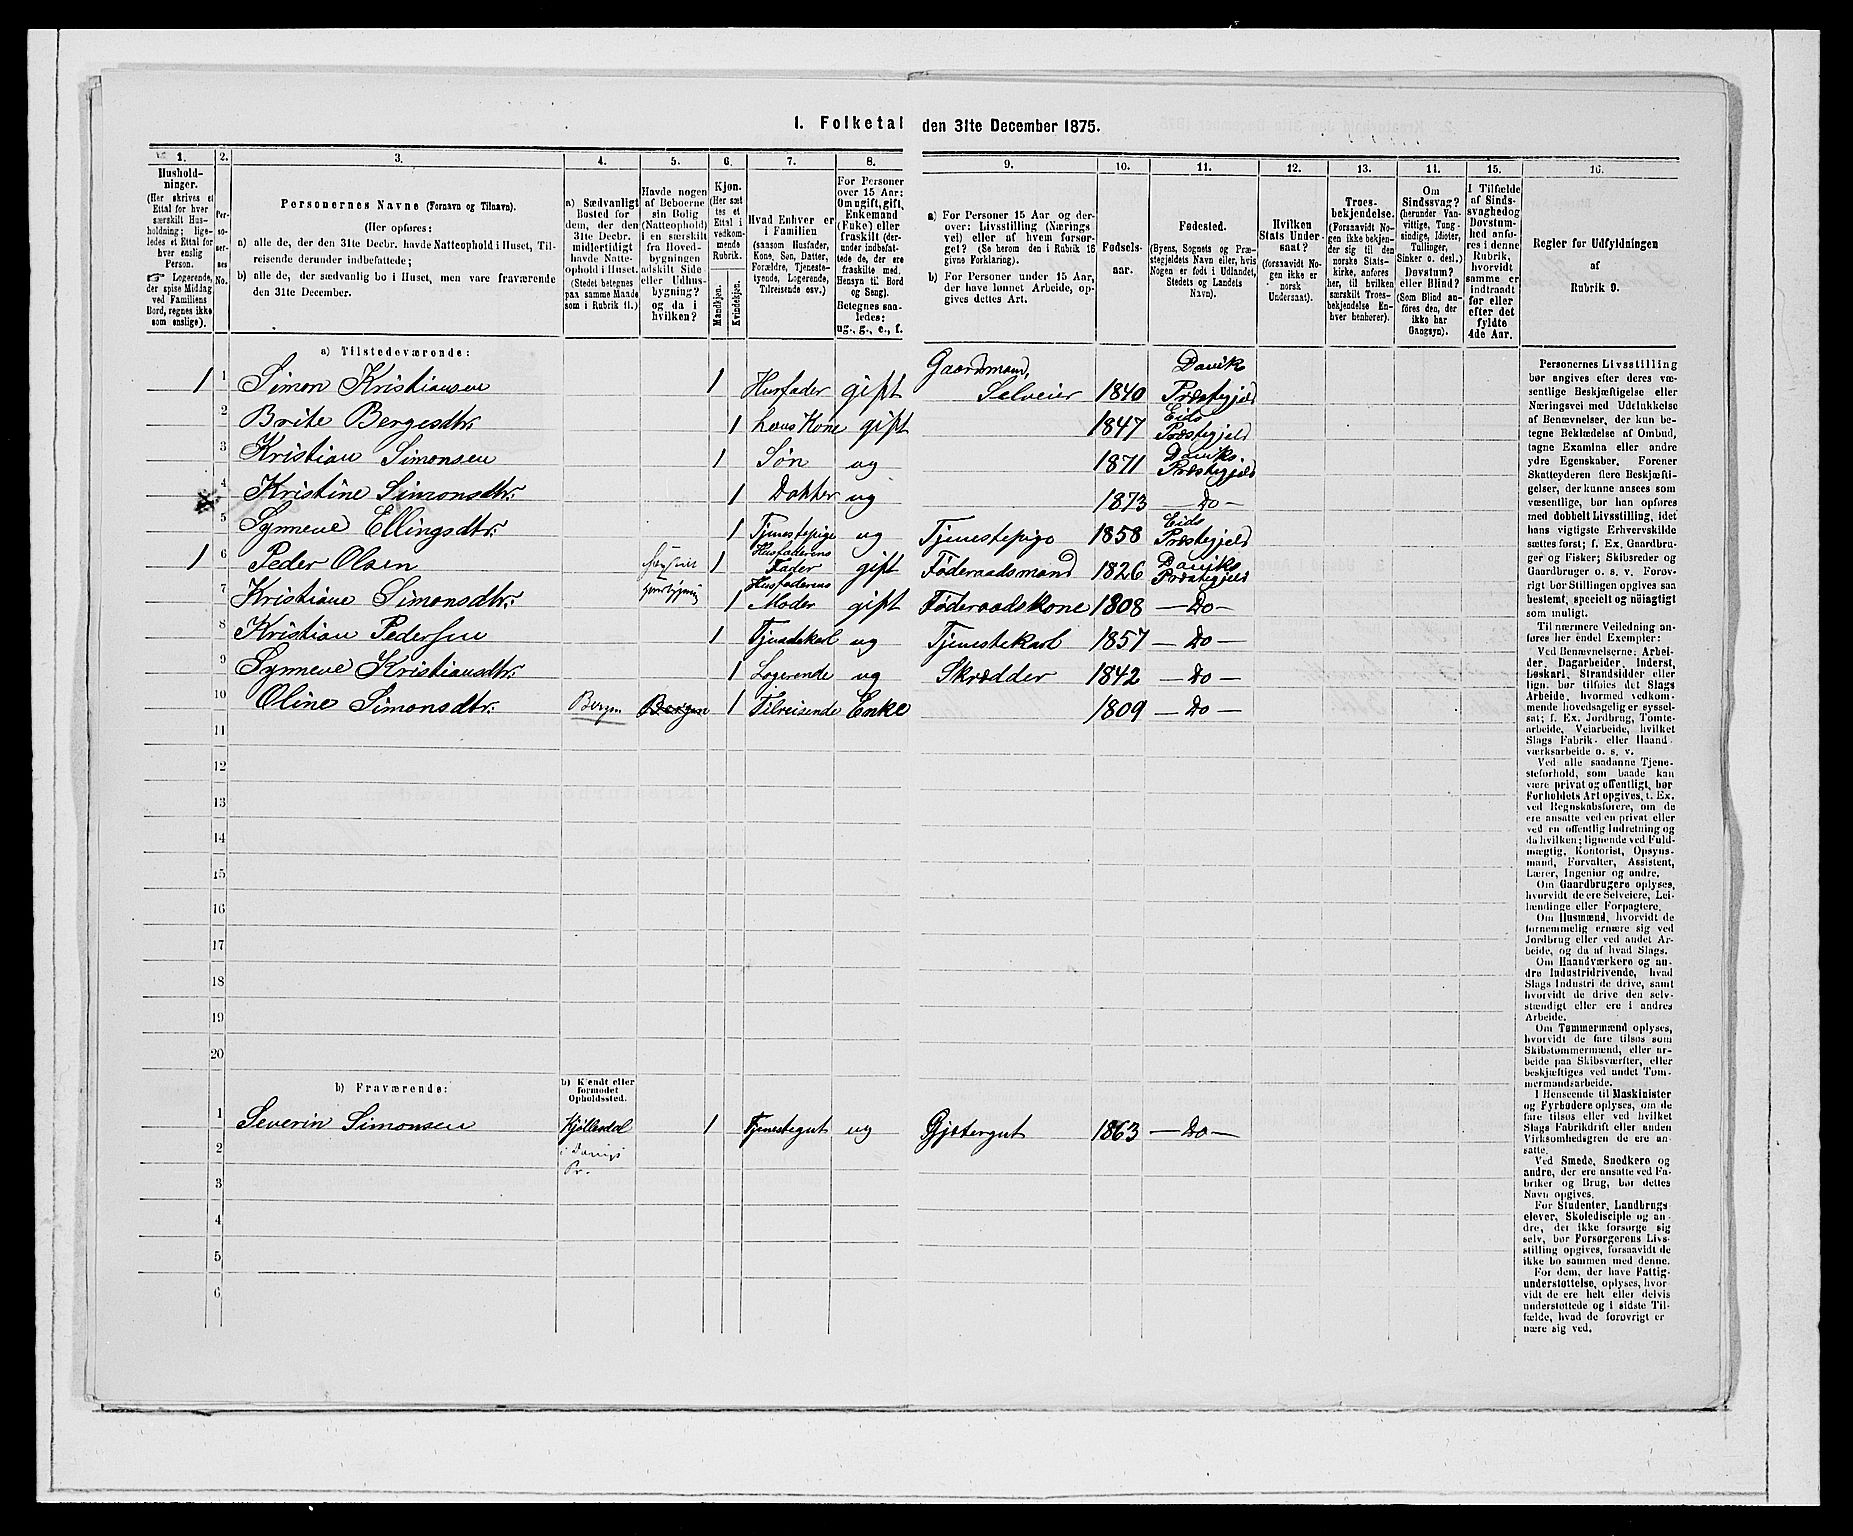 1. Folketal den 31te December 1875.
1. 2. 3. 4. 5. 6. 7. 8. 9. 10. 11. 12. 13. 14. 15. 16.
Hushold-
ninger.
(Her skrives et
Ettal for hver
særskilt Hus-
holdning; lige-
ledes et Ettal for
hver enslig
Person.
☞ Logerende,
der spise Middag
ved Familiens
Bord, regnes ikke
som enslige).
Per-
soner-
nes
No.
Personernes Navne (Fornavn og Tilnavn).
(Her opføres:
a) alle de, der den 31te Decbr. havde Natteophold i Huset, Til-
reisende derunder indbefattede;
b) alle de, der sædvanlig bo i Huset, men vare fraværende
den 31te December.
a) Sædvanligt
Bosted for
dem, der den
31te Decbr.
midlertidigt
havde Natte-
ophold i Huset.
(Stedet betegnes
paa samme Maade
som i Rubrik 11.)
Havde nogen
af Beboerne
sin Bolig
(Natteophold)
i en særskilt
fra Hoved-
bygningen
adskilt Side
eller Udhus-
bygning?
og da i
hvilken?
Kjøn.
(Her sæt-
tes et
Ettal i
vedkom-
mende
Rubrik.
Mandkjøn.
Kvindekjøn.
Hvad Enhver er
i Familien
(saasom Husfader,
Kone, Søn, Datter,
Forældre, Tjeneste-
tyende, Logerende,
Tilreisende osv.)
For Personer
over 15 Aar:
Om ugift, gift,
Enkemand
(Enke) eller
fraskilt (der-
under indbefat-
tede de, der ere
fraskilte med.
Hensyn til Bord
og Seng).
Betegnes saa-
ledes:
ug., g., e., f.
a) For Personer 15 Aar og der-
over: Livsstilling (Nærings
vei) eller af hvem forsør-
get? (Se herom den i Rubrik 16
givne Forklaring).
b) For Personer under 15 Aar,
der have lønnet Arbeide, op-
gives dettes Art.
Fødsels-
aar.
Fødested.
(Byens, Sognets og Præ-
stegjeldets Navn eller, hvis
Nogen er født i Udlandet,
Stedets og Landets
Navn).
Hvilken
Stats Under-
saat?
(forsaavidt No-
gen ikke er
norsk
Undersaat).
Troes-
bekjendelse.
(Forsaavidt No-
gen ikke bekjen-
der sig til den
norske Stats-
kirke, anføres
her, til hvilken
særskilt Troes-
bekjendelse En-
hver henhører).
Om
Sindssvag?
(herunder Van-
vittige, Tung-
sindige, Idioter,
Tullinger,
Sinker o. desl.).
Døvstum?
eller Blind?
(Som Blind an-
føres den, der
ikke har
Gangsyn).
I Tilfælde
af Sinds-
svaghed og
Døvstum-
hed anfø-
res i denne
Rubrik,
hvorvidt
samme er
indtraadt
før eller
efter det
fyldte
4de Aar.
Regler for Udfyldningen
af
Rubrik 9.
a) Tilstedeværende:
1 1 Simon Kristiansen 1 Husfader gift Gaardmand, Selveier 1840 Davik Præstegjeld
2 Brite Bergesdtr. 1 hans Kone gift 1847 Eids Præstegjeld
3 Kristian Simonsen 1 Søn ug 1871 Daviks Præstegjeld
4 Kristine Simonsdtr. 1 Datter ug 1873 — Do —
5 Synneve Ellingsdtr. 1 Tjenestepige ug Tjenestepige 1858 Eids Præstegjeld
1 6 Peder Olsen 1 Husfaderens Fader gift Føderaadsmand 1826 Daviks Præstegjeld
7 Kristiane Simonsdtr. 1 Husfaderens Moder gift Føderaadskone 1808 — Do —
8 Kristian Pedersen 1 Tjenestekarl ug Tjenestekarl 1857 — Do —
9 Synneve Kristiansdtr. 1 Logerende ug Skrædder 1842 — Do —
10 Oline Simonsdtr. Bergen Bergen 1 Tilreisende Enke 1809 — Do —
11
12
13
14
15
16
17
18
19
20
b) Fraværende:
b) Kjendt eller
formodet
Opholdssted.
1 Severin Simonsen Kjøllesdal 1 Tjenestegut ug Gjætergut 1863 — Do —
2 i Daviks
Pr.
3
4
5
6
Personernes Livsstilling
bør angives efter deres væ-
sentlige Beskjæftigelse eller
Næringsvei med Udelukkelse
af Benævnelser, der kun be-
tegne Beklædelse af Ombud,
tagne Examina eller andre
ydre Egenskaber. Forener
Skatteyderen flere Beskjæfti-
gelser, der kunne ansees som
væsentlige, bør han opføres
med dobbelt Livsstilling, idet
hans vigtigste Erhvervskilde
sættes først; f. Ex. Gaardbru-
ger og Fisker; Skibsreder og
Gaardbruger o. s. v. Forøv-
rigt bør Stillingen opgives saa
bestemt, specielt og nøiagtigt
som muligt.
Til nærmere Veiledning an-
føres her endel Exempler:
Ved Benævnelserne: Arbei-
der, Dagarbeider, Inderst,
Løskarl, Strandsidder eller
lign. bør tilføies det Slags
Arbeide, hvormed vedkom-
mende hovedsagelig er syssel-
sat; f. Ex. Jordbrug, Tomte-
arbeide, Veiarbeide, hvilket
Slags Fabrik- eller Haand
værksarbeide o. s. v.
Ved alle saadanne Tjene-
steforhold, som baade kan
være privat og offentligt, bør
Forholdets Art opgives, t. Ex.
ved Regnskabsførere, om de
ere ansatte ved en privat eller
ved en offentlig Indretning og
da hvilken; lignende ved Fuld-
mægtig, Kontorist, Opsyns-
mand, Forvalter, Assistent,
Lærer, Ingeniør og andre.
Om Gaardbrugere oplyses,
hvorvidt de ere Selveiere, Lei-
lændinge eller Forpagtere.
Om Husmænd, hvorvidt de
fornemmelig ernære sig ved
Jordbrug eller ved andet Ar-
beide, og da af hvad Slags.
Om Haandværkere og an-
dre Industridrivende, hvad
Slags Industri de drive, samt
hvorvidt de drive den selv-
stændigt eller ere i andres
Arbeide.
Om Tømmermænd oplyses,
hvorvidt de fare tilsøs som
Skibstømmermænd, eller ar-
beide paa Skibsværfter, eller
beskjæftiges ved andet Tøm-
mermandsarbeide.
I Henseende til Maskinister
og Fyrbødere oplyses, om de
fare tilsøs eller ved hvilket
Slags Fabrikdrift eller anden
Virksomhedsgren de ere an-
satte.
Ved Smede, Snedkere og
andre, der ere ansatte ved Fa-
briker og Brug, bør dettes
Navn opgives.
For Studenter, Landbrugs
elever, Skoledisciple og an-
dre, der ikke forsørge sig
selv, bør Forsørgerens Livs-
stilling opgives, forsaavidt de
ikke bo sammen med denne.
For dem, der have Fattig-
understøttelse, oplyses, hvor-
vidt de ere helt eller delvis
understøttede og i sidste Til-
fælde, hvad de forøvrigt er
nære sig ved.